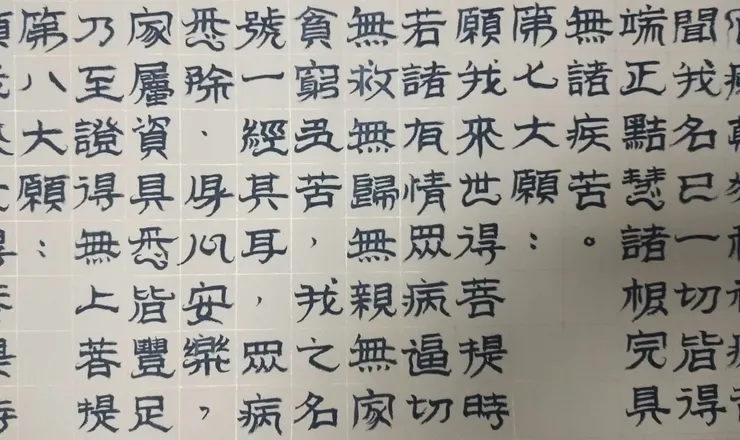 聞我名已一切皆得
端正黠慧諸根完具
無諸疾苦。
第七大願：
願我來世得菩提時
若諸有情眾病逼切
無救無歸無親無家
貧窮多苦，我之名
號一經其耳，眾病
悉除、身心安樂，
家屬資具悉皆豐足
乃至證得無上菩提
第八大願：